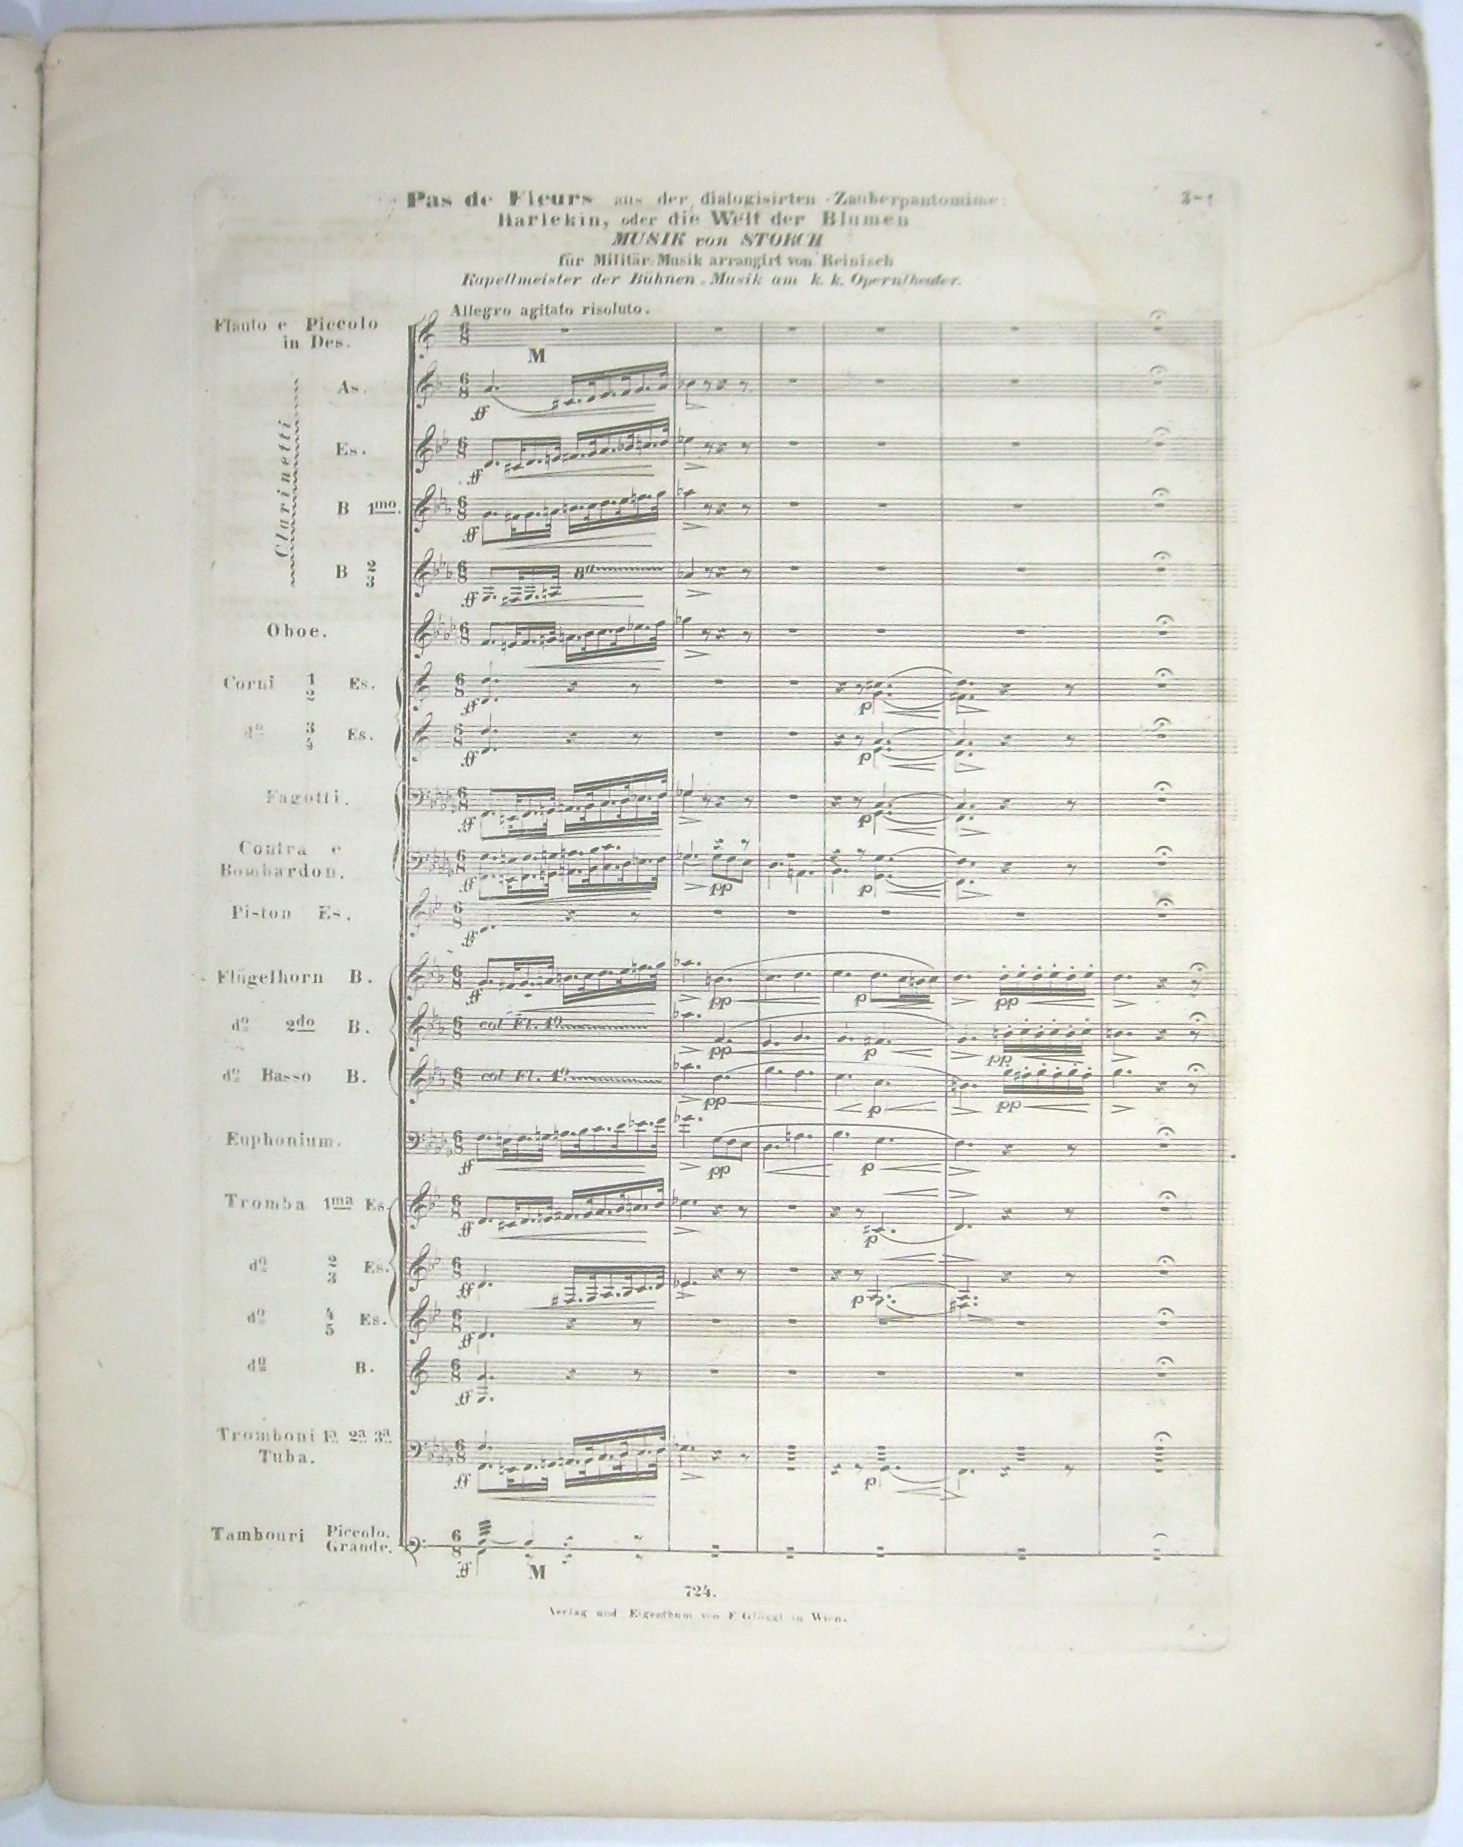 Pas de Fleurs aus der dialogisirten Zauberpantomime:
Harlekin, oder die Welt der Blumen
MUSIK von STORCH
für Militär-Musik arrangirt von Reinisch
Kapellmeister der Bühnen-Musik am k. k. Operntheater.
Allegro agitato risoluto.
Flauto e Piccolo
in Des.
M
Clarinetti
As.
ff
Es.
ff
B 1mo.
ff
B 2 3
8va
ff
Oboe.
Corni 1 2 Es.
ff p
do 3 4 Es.
ff p
Fagotti.
ff p
Contra e
Bombardon.
ff pp p
Piston Es.
ff
Flügelhorn B.
ff pp p pp
do 2do B.
col Fl. 1o
pp p pp
do Basso B.
col Fl. 1o
pp p pp
Euphonium.
ff pp p
Tromba 1ma Es.
ff p
do 2 3 Es.
ff p
do 4 5 Es.
ff
do B.
ff
Tromboni 1a 2a 3a
Tuba.
ff p
Tambouri Piccolo.
Grande.
ff M
724.
Verlag und Eigenthum von F. Glöggl in Wien.